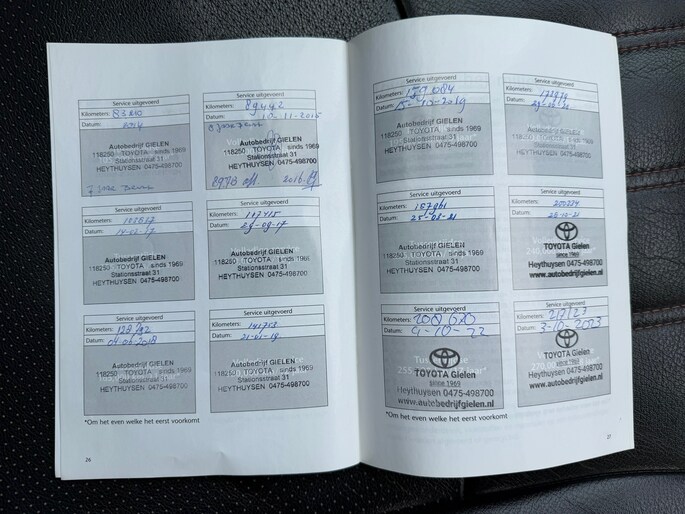 Service uitgevoerd
Kilometers: 83310
Datum:
Autobedrijf GIELEN
118250 TOYOTA sinds 1969
Stationsstraat 31
HEYTHUYSEN 0475-498700
Service uitgevoerd
Kilometers: 89442
Datum: 10-11-2015
Autobedrijf GIELEN
118250 TOYOTA sinds 1969
Stationsstraat 31
HEYTHUYSEN 0475-498700
Service uitgevoerd
Kilometers:
Datum:
Autobedrijf GIELEN
118250 TOYOTA sinds 1969
Stationsstraat 31
HEYTHUYSEN 0475-498700
Service uitgevoerd
Kilometers: 117415
Datum: 29-09-17
Autobedrijf GIELEN
118250 TOYOTA sinds 1969
Stationsstraat 31
HEYTHUYSEN 0475-498700
Service uitgevoerd
Kilometers:
Datum: 04-06-2018
Autobedrijf GIELEN
118250 TOYOTA sinds 1969
Stationsstraat 31
HEYTHUYSEN 0475-498700
Service uitgevoerd
Kilometers: 141713
Datum: 21-01-19
Autobedrijf GIELEN
118250 TOYOTA sinds 1969
Stationsstraat 31
HEYTHUYSEN 0475-498700
*Om het even welke het eerst voorkomt
26
Service uitgevoerd
Kilometers:
Datum: 15-10-2019
Autobedrijf GIELEN
118250 TOYOTA sinds 1969
Stationsstraat 31
HEYTHUYSEN 0475-498700
Service uitgevoerd
Kilometers:
Datum:
Autobedrijf GIELEN
118250 TOYOTA sinds 1969
Stationsstraat 31
HEYTHUYSEN 0475-498700
Service uitgevoerd
Kilometers: 187961
Datum:
Autobedrijf GIELEN
118250 TOYOTA sinds 1969
Stationsstraat 31
HEYTHUYSEN 0475-498700
Service uitgevoerd
Kilometers: 200234
Datum: 28-10-21
TOYOTA Gielen
since 1969
Heythuysen 0475-498700
www.autobedrijfgielen.nl
Service uitgevoerd
Kilometers:
Datum: 4-10-22
TOYOTA Gielen
since 1969
Heythuysen 0475-498700
www.autobedrijfgielen.nl
Service uitgevoerd
Kilometers: 217127
Datum: 3-10-2023
TOYOTA Gielen
since 1969
Heythuysen 0475-498700
www.autobedrijfgielen.nl
*Om het even welke het eerst voorkomt
27